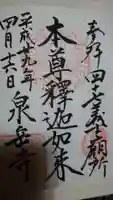 参拝 四十七義士願所
本尊釋迦如来
泉岳寺
平成廿九年
四月十六日